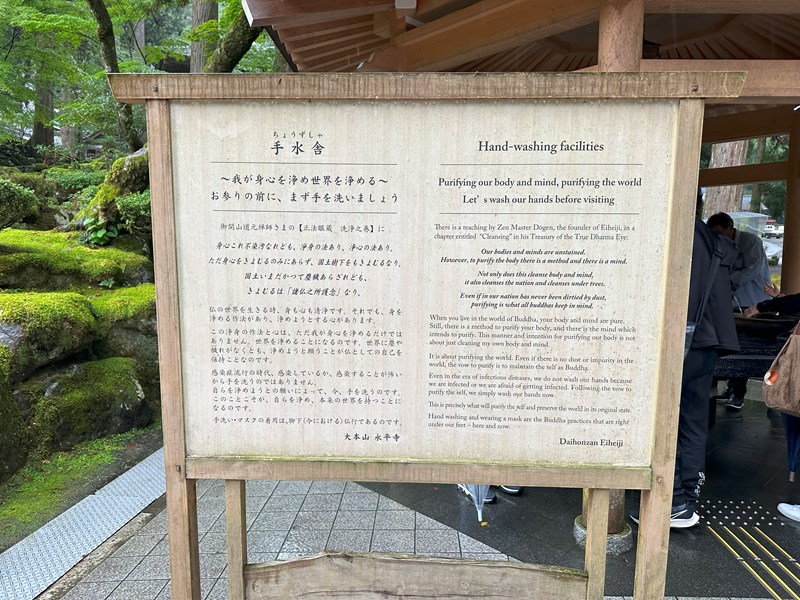 ちょうずしゃ
手水舎
〜我が身心を浄め世界を浄める〜
お参りの前に、まず手を洗いましょう
御開山道元禅師さまの【正法眼蔵　洗浄之巻】に
身心これ不染汚なれども、浄身の法あり、浄心の法あり。
ただ身心をきよむるのみにあらず、国土樹下をもきよむるなり。
国土いまだかつて塵穢あらざれども、
きよむるは「諸仏之所護念」なり。
仏の世界を生きる時、身も心も清浄です。それでも、身を
浄める作法があり、浄めようとする心があります。
この浄身の作法と心は、ただ我が身心を浄めるだけでは
ありません。世界を浄めることになるのです。世界に塵や
穢れがなくとも、浄めようと願うことが仏としての自己を
保持ことなのです。
感染症流行の時代、感染しているか、感染することが怖い
から手を洗うのではありません。
自らを浄めようとの願いによって、今、手を洗うのです。
このことこそが、自らを浄め、本来の世界を持つことに
なるのです。
手洗い・マスクの着用は、脚下(今における)仏行であるのです。
大本山 永平寺
Hand-washing facilities
Purifying our body and mind, purifying the world
Let's wash our hands before visiting
There is a teaching by Zen Master Dōgen, the founder of Eiheiji, in a
chapter entitled "Cleansing" in his Treasury of the True Dharma Eye:
Our bodies and minds are unstained.
However, to purify the body there is a method and there is a mind.
Not only does this cleanse body and mind,
it also cleanses the nation and cleanses under trees.
Even if in our nation has never been dirtied by dust,
purifying is what all buddhas keep in mind.
When you live in the world of Buddha, your body and mind are pure.
Still, there is a method to purify your body, and there is the mind which
intends to purify. This manner and intention for purifying our body is not
about just cleansing my own body and mind.
It is about purifying the world. Even if there is no dust or impurity in the
world, the vow to purify is to maintain the self as Buddha.
Even in the era of infectious diseases, we do not wash our hands because
we are infected or we are afraid of getting infected. Following the vow to
purify the self, we simply wash our hands now.
This is precisely what will purify the self and preserve the world in its original state.
Hand washing and wearing a mask are the Buddha practices that are right
under our feet – here and now.
Daihonzan Eiheiji